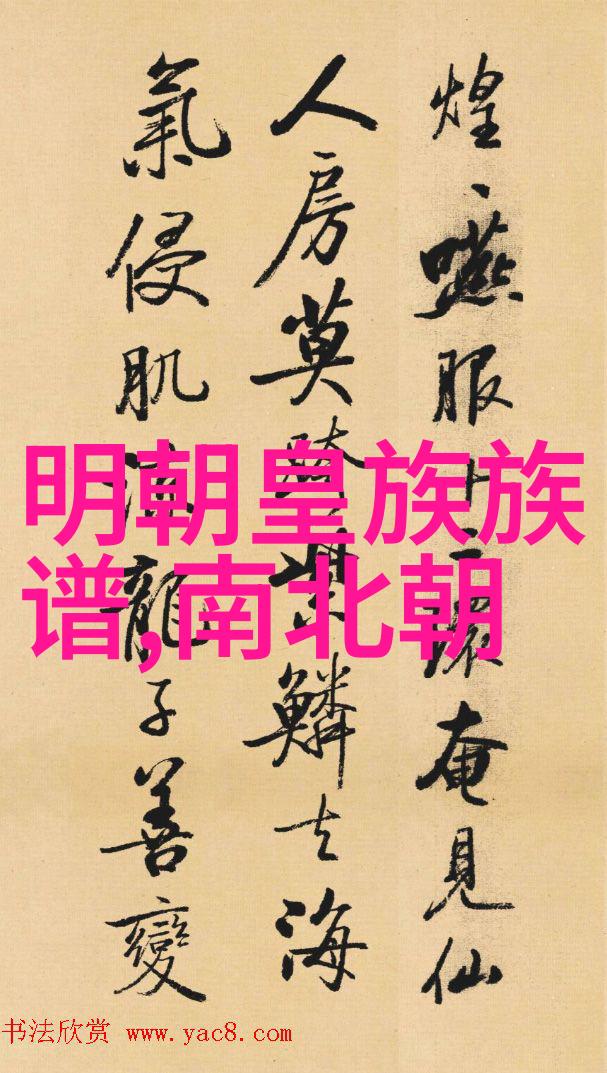 煌、嚥服十二環奄見仙
人房莫跨紫鱗去海
氣侵肌涼龍子善變
明朝皇族族
谱,南北朝
书法欣赏 www.yac8.com